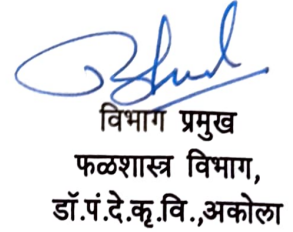 विभाग प्रमुख
फळशास्त्र विभाग,
डॉ.पं.दे.कृ.वि.,अकोला